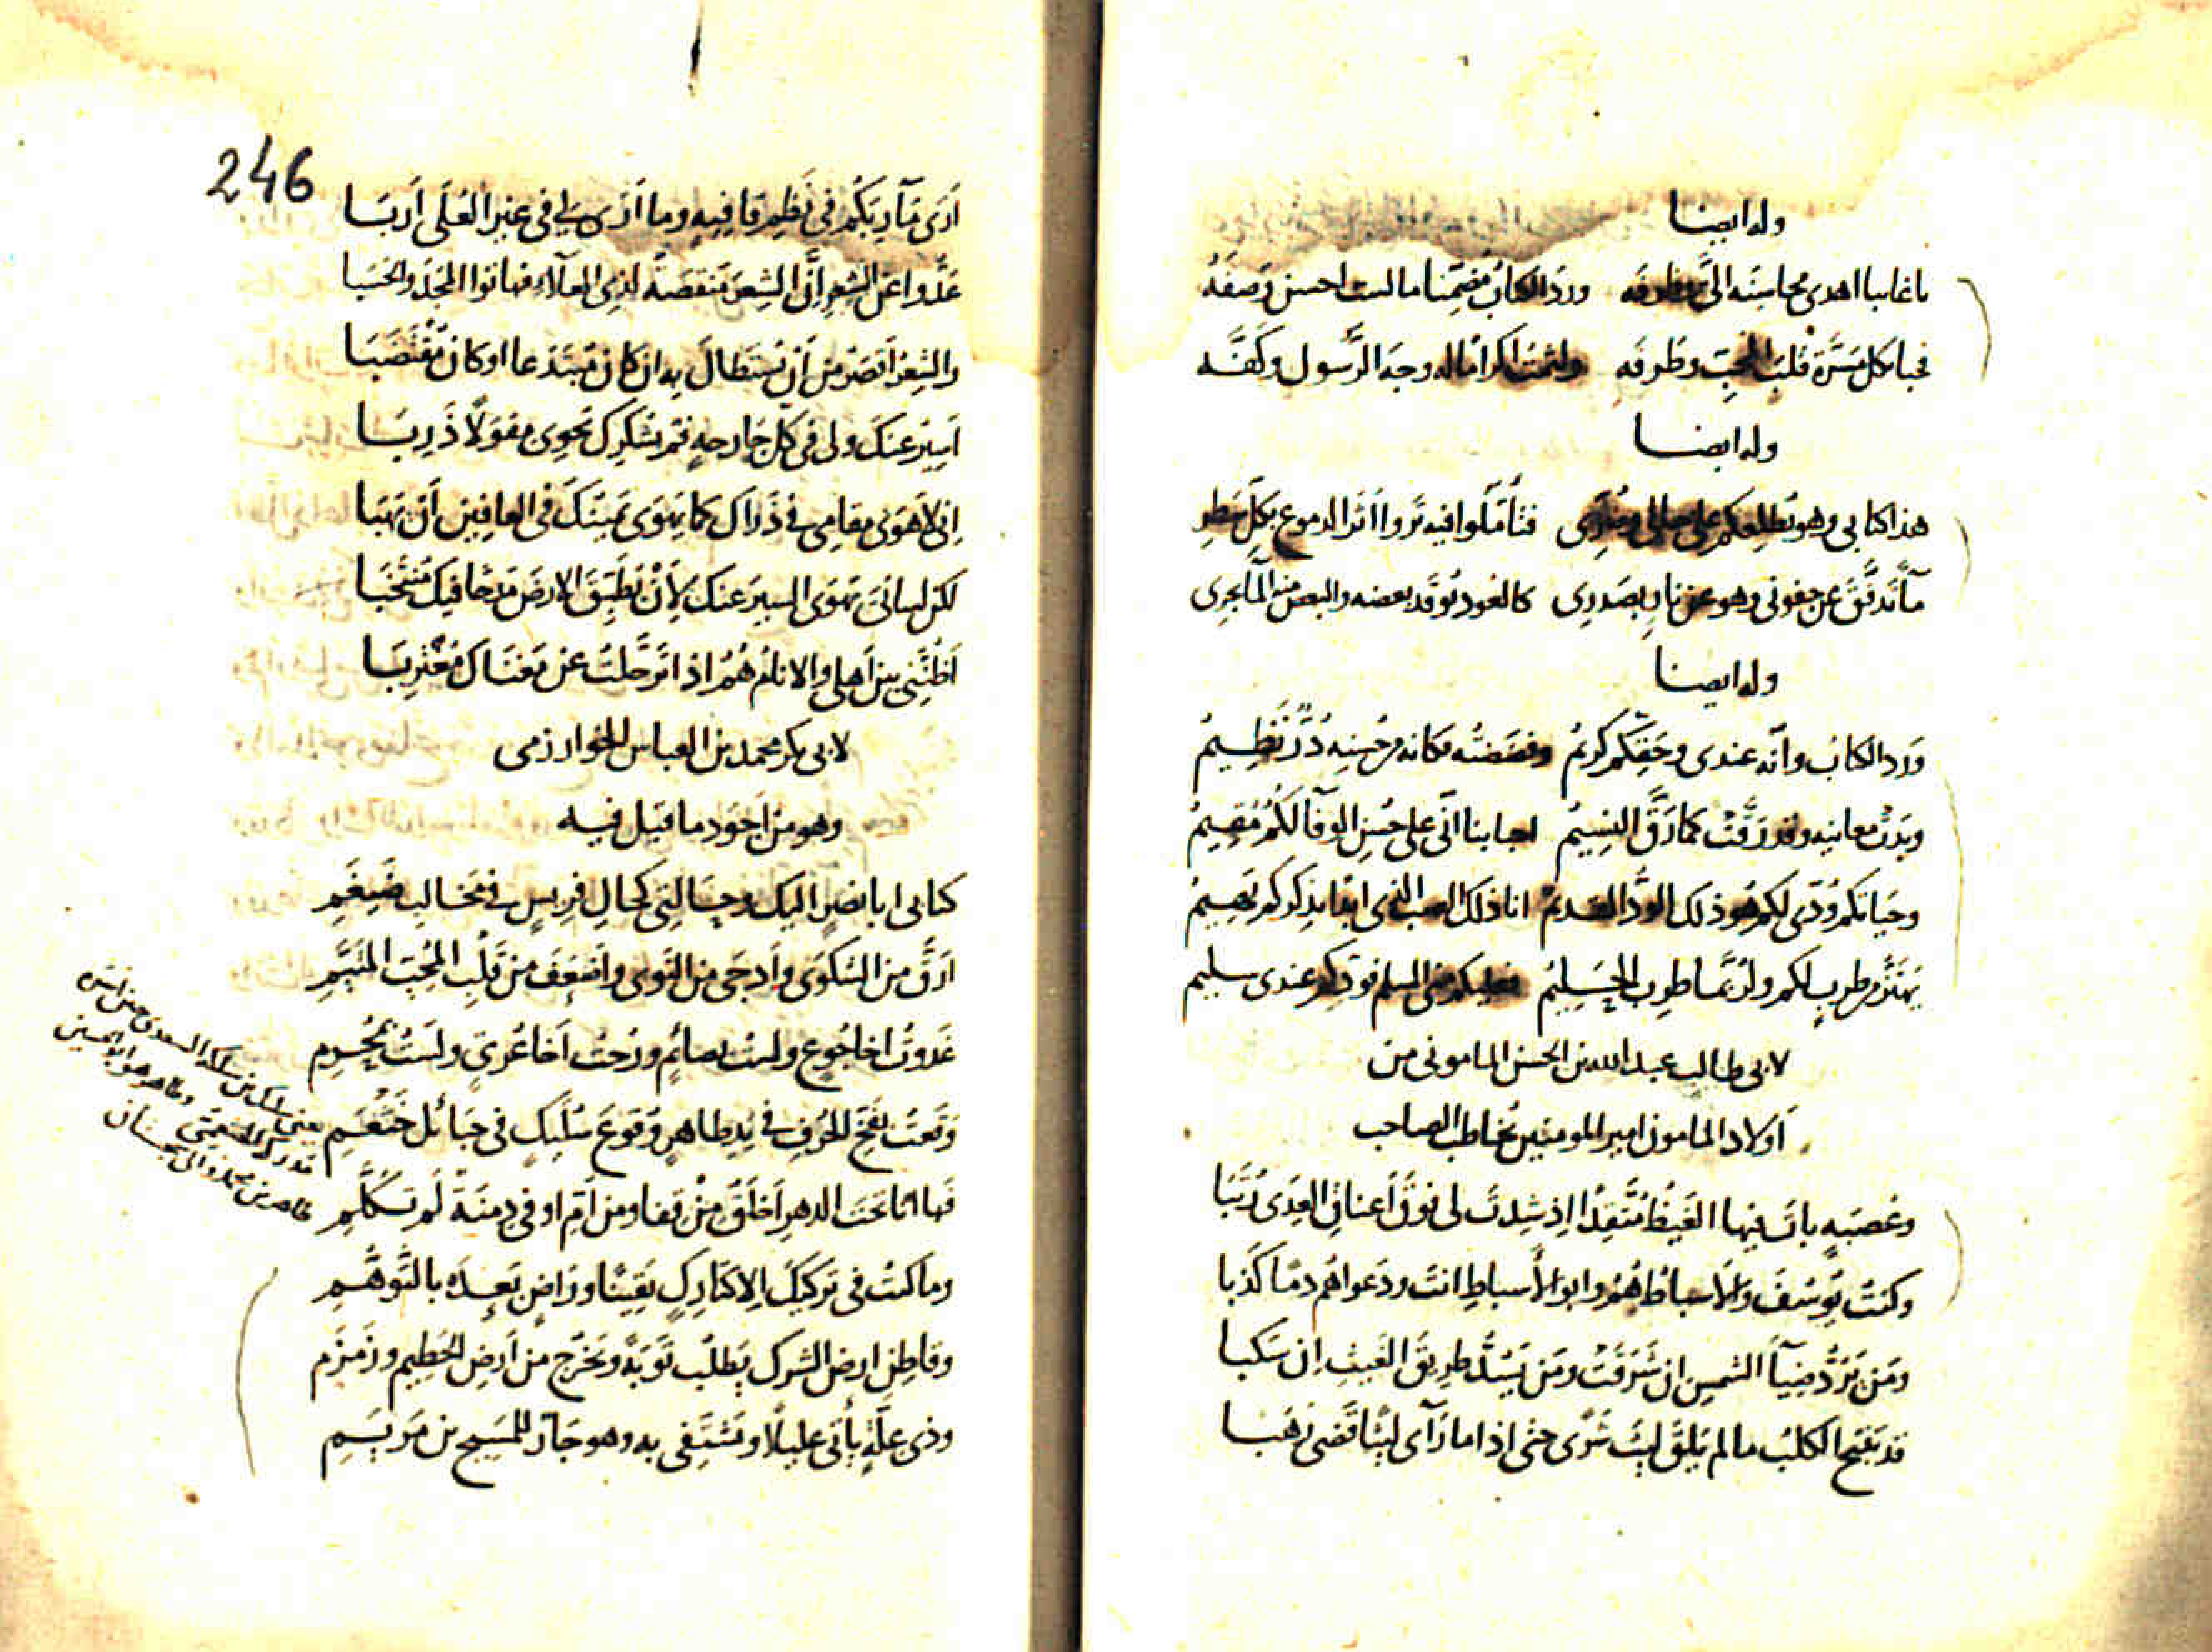 وله ايضا
يا غايبا اهدى محاسنه الىّ وظرفه ورد الكتاب مضمّنا ما لست احسن وصفه
فحبا بكل مسرّة قلب المحبّ وطرفه ولثمت اكراما له وجه الرسول وكفّه
وله ايضا
هذا كتابي وهو يطلعكم على حالي فتأمّلوا فيه تروا اثر الدموع بكلّ سطر
مآ تدفّق عن جفوني وهو عن نار بصدري كالعود توقد بعضه والبعض منه المآ يجرى
وله ايضا
ورد الكتاب وانّه عندى وحقّكم كريم وفضضته فكانه من حسنه درّ نظيم
وبدت معانيه وقد رقّت كما رقّ النسيم احبابنا انّى على حسن الوفآ لكم مقيم
وحياتكم ودّى لكم هو ذلك الودّ القديم انا ذلك الصب الذى ابدا بذكركم يهيم
يهتزّ من طرب لكم ولربّما طرب الحليم فعليكم منى السلم فودّكم عندى سليم
لابى طالب عبد الله بن الحسن المامونى من
اولاد المامون امير المومنين يخاطب الصاحب
وعصبة بات فيها الغيظ متّقدا اذ شدت لى فوق اعناق العدى رتبا
وكنت يوسف والاسباط هم وابو الأسباط انت ودعواهم دما كذبا
ومن يردّ ضيآ الشمس ان شرقت ومن يسدّ طريق الغيث ان سكبا
قد ينبح الكلب ما لم يلق ليث شرى حتى اذا ما رآى ليثا قضى رهبا
246
ارى مآربكم فى نظم قافيه وما ارى لى فى غير العلى أربا
عدّوا عن الشعر انّ الشعر منقصة لذى العلآء فهاتوا المجد والحسبا
والشعر اقصر من أن يستطال به ان كان مبتدعا او كان مقتضبا
اسير عنك ولى فى كل جارحة فم بشكرك يحوى مقولا ذربا
انى لاهوى مقامى فى ذراك كما تهوى يمينك فى العافين أن تهبا
لكن لسانى يهوى السير عنك لأن يطبّق الارض مدحا فيك منتخبا
اظنّنى بين اهلى والانام هم اذا ترحّلت عن مغناك مغتربا
لابى بكر محمد بن العباس الخوارزمى
وهو من اجود ما قيل فيه
كتابى ابا نصر اليك وحالتى كحال فريس فى مخالب ضيغم
ارقّ من الشكوى وادجى من النوى واضعف من قلب المحبّ المتيّم
غدوت اخا جوع ولست بصائم ورحت اخا عرى ولست بمحرم
وقعت بفخّ الخوف فى يد طاهر وقوع سليك فى حبائل خثعم
يعنى سليك بن سلكة السعدى حين اسره
وطاهر هو ابو الحسين
طاهر بن محمد والى سجستان
فها انا تحت الدهر اخلق من قفا ومن ام اوفى دمنة لم تكلّم
وما كنت فى تركيك الا كتارك يقينا وراض بعده بالتوهّم
وقاطن ارض الشرك يطلب توبة ويخرج من ارض الحطيم وزمزم
وذى علّة يأتى عليلا ويشتفى به وهو جار للمسيح بن مريم